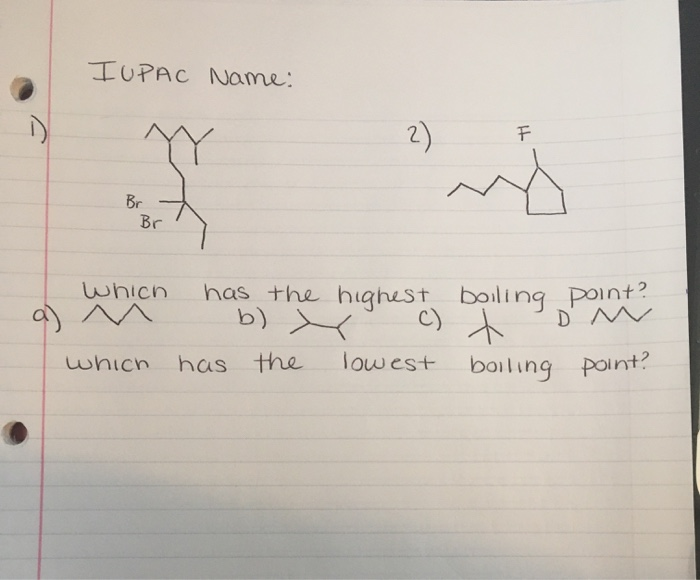 IUPAC Name:
1)
2)
F
Br
Br
Which has the highest boiling point?
a) b) c) D
which has the lowest boiling point?